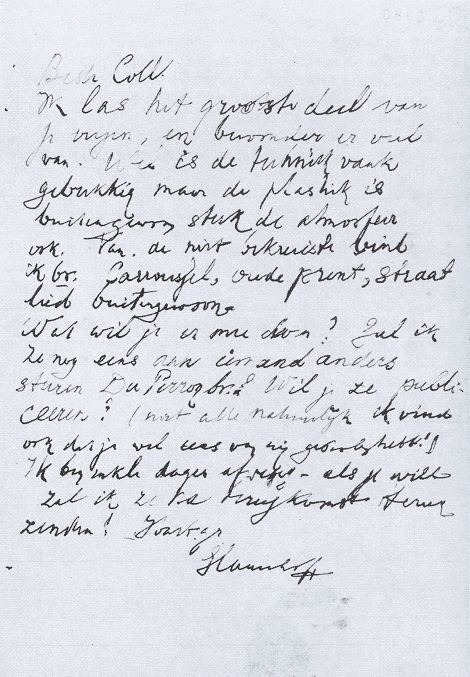 Beste Coll.
Ik las het grootste deel van
je verzen, en bewonder er veel
van. Wel is de techniek vaak
gebrekkig maar de plastiek is
buitengewoon sterk de atmosfeer
ook. Van de niet vind
ik br. Carrousel, oude prent, straat
lied buitengewoon.
Wat wil je er mee doen? Zal ik
ze nog eens aan iemand anders
sturen Du Perron br.? Wil je ze publi-
ceeren? (niet alle natuurlijk ik vind
ook dat je wel eens
Ik ben enkele dagen afwezig - als je wilt
zal ik ze na terugkomst terug
zenden! Hartgr
Slauerhoff